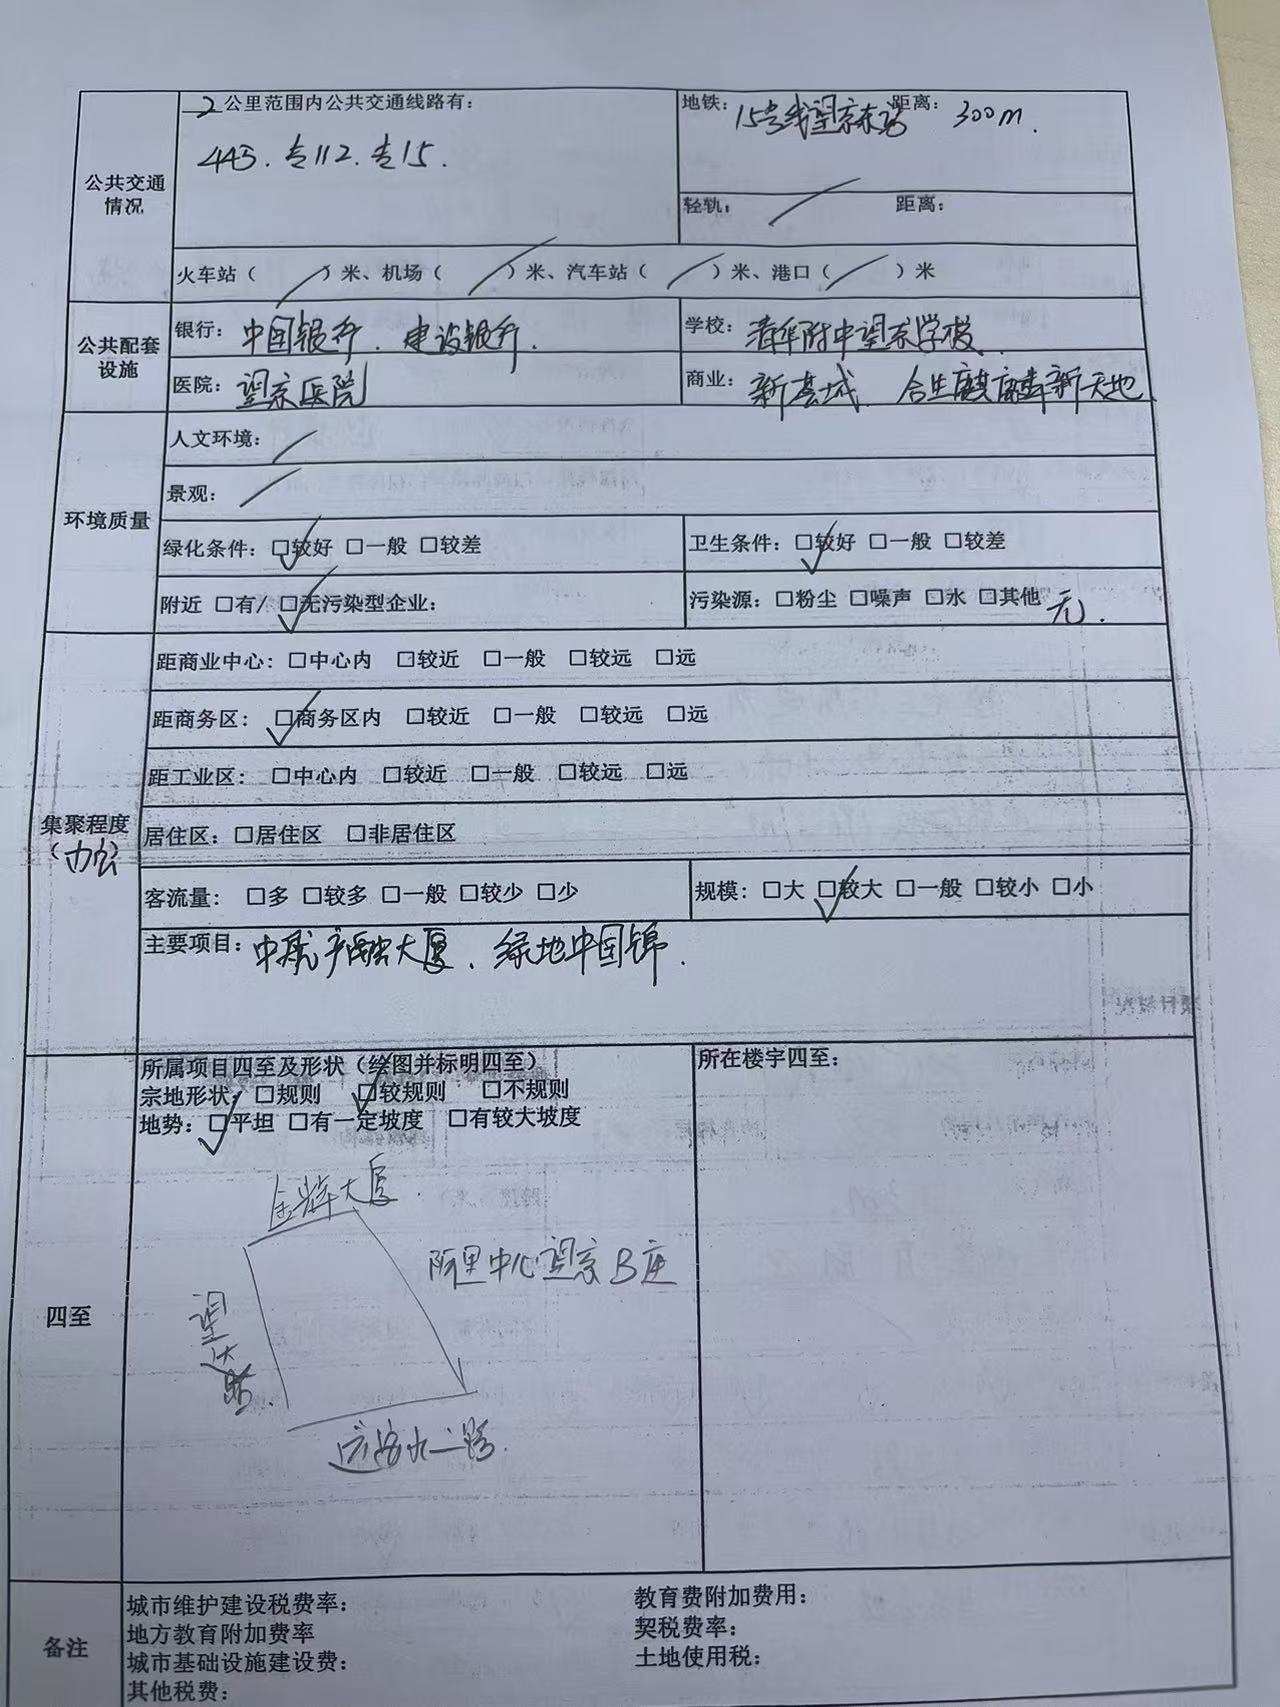 2公里范围内公共交通线路有：
443. 专112. 专15.
地铁：15号线望京东站 距离：300m.
公共交通情况
轻轨：/ 距离：
火车站（/）米、机场（/）米、汽车站（/）米、港口（/）米
公共配套设施
银行：中国银行. 建设银行.
学校：清华附中望京学校
医院：望京医院
商业：新荟城、合生麒麟新天地
人文环境：/
景观：/
环境质量
绿化条件：☑较好 □一般 □较差
卫生条件：☑较好 □一般 □较差
附近 □有/ ☑无污染型企业：
污染源：□粉尘 □噪声 □水 □其他 无.
距商业中心：□中心内 □较近 □一般 □较远 □远
距商务区：☑商务区内 □较近 □一般 □较远 □远
距工业区：□中心内 □较近 □一般 □较远 □远
集聚程度
（办公
居住区：□居住区 □非居住区
客流量：□多 □较多 □一般 □较少 □少
规模：□大 ☑较大 □一般 □较小 □小
主要项目：中航产融大厦、绿地中国锦.
所属项目四至及形状（绘图并标明四至）
宗地形状：□规则 ☑较规则 □不规则
地势：☑平坦 □有一定坡度 □有较大坡度
所在楼宇四至：
四至
金辉大厦.
阿里中心望京B座
望京
路.
备注
城市维护建设税费率：
教育费附加费用：
地方教育附加费率
契税费率：
城市基础设施建设费：
土地使用税：
其他税费：